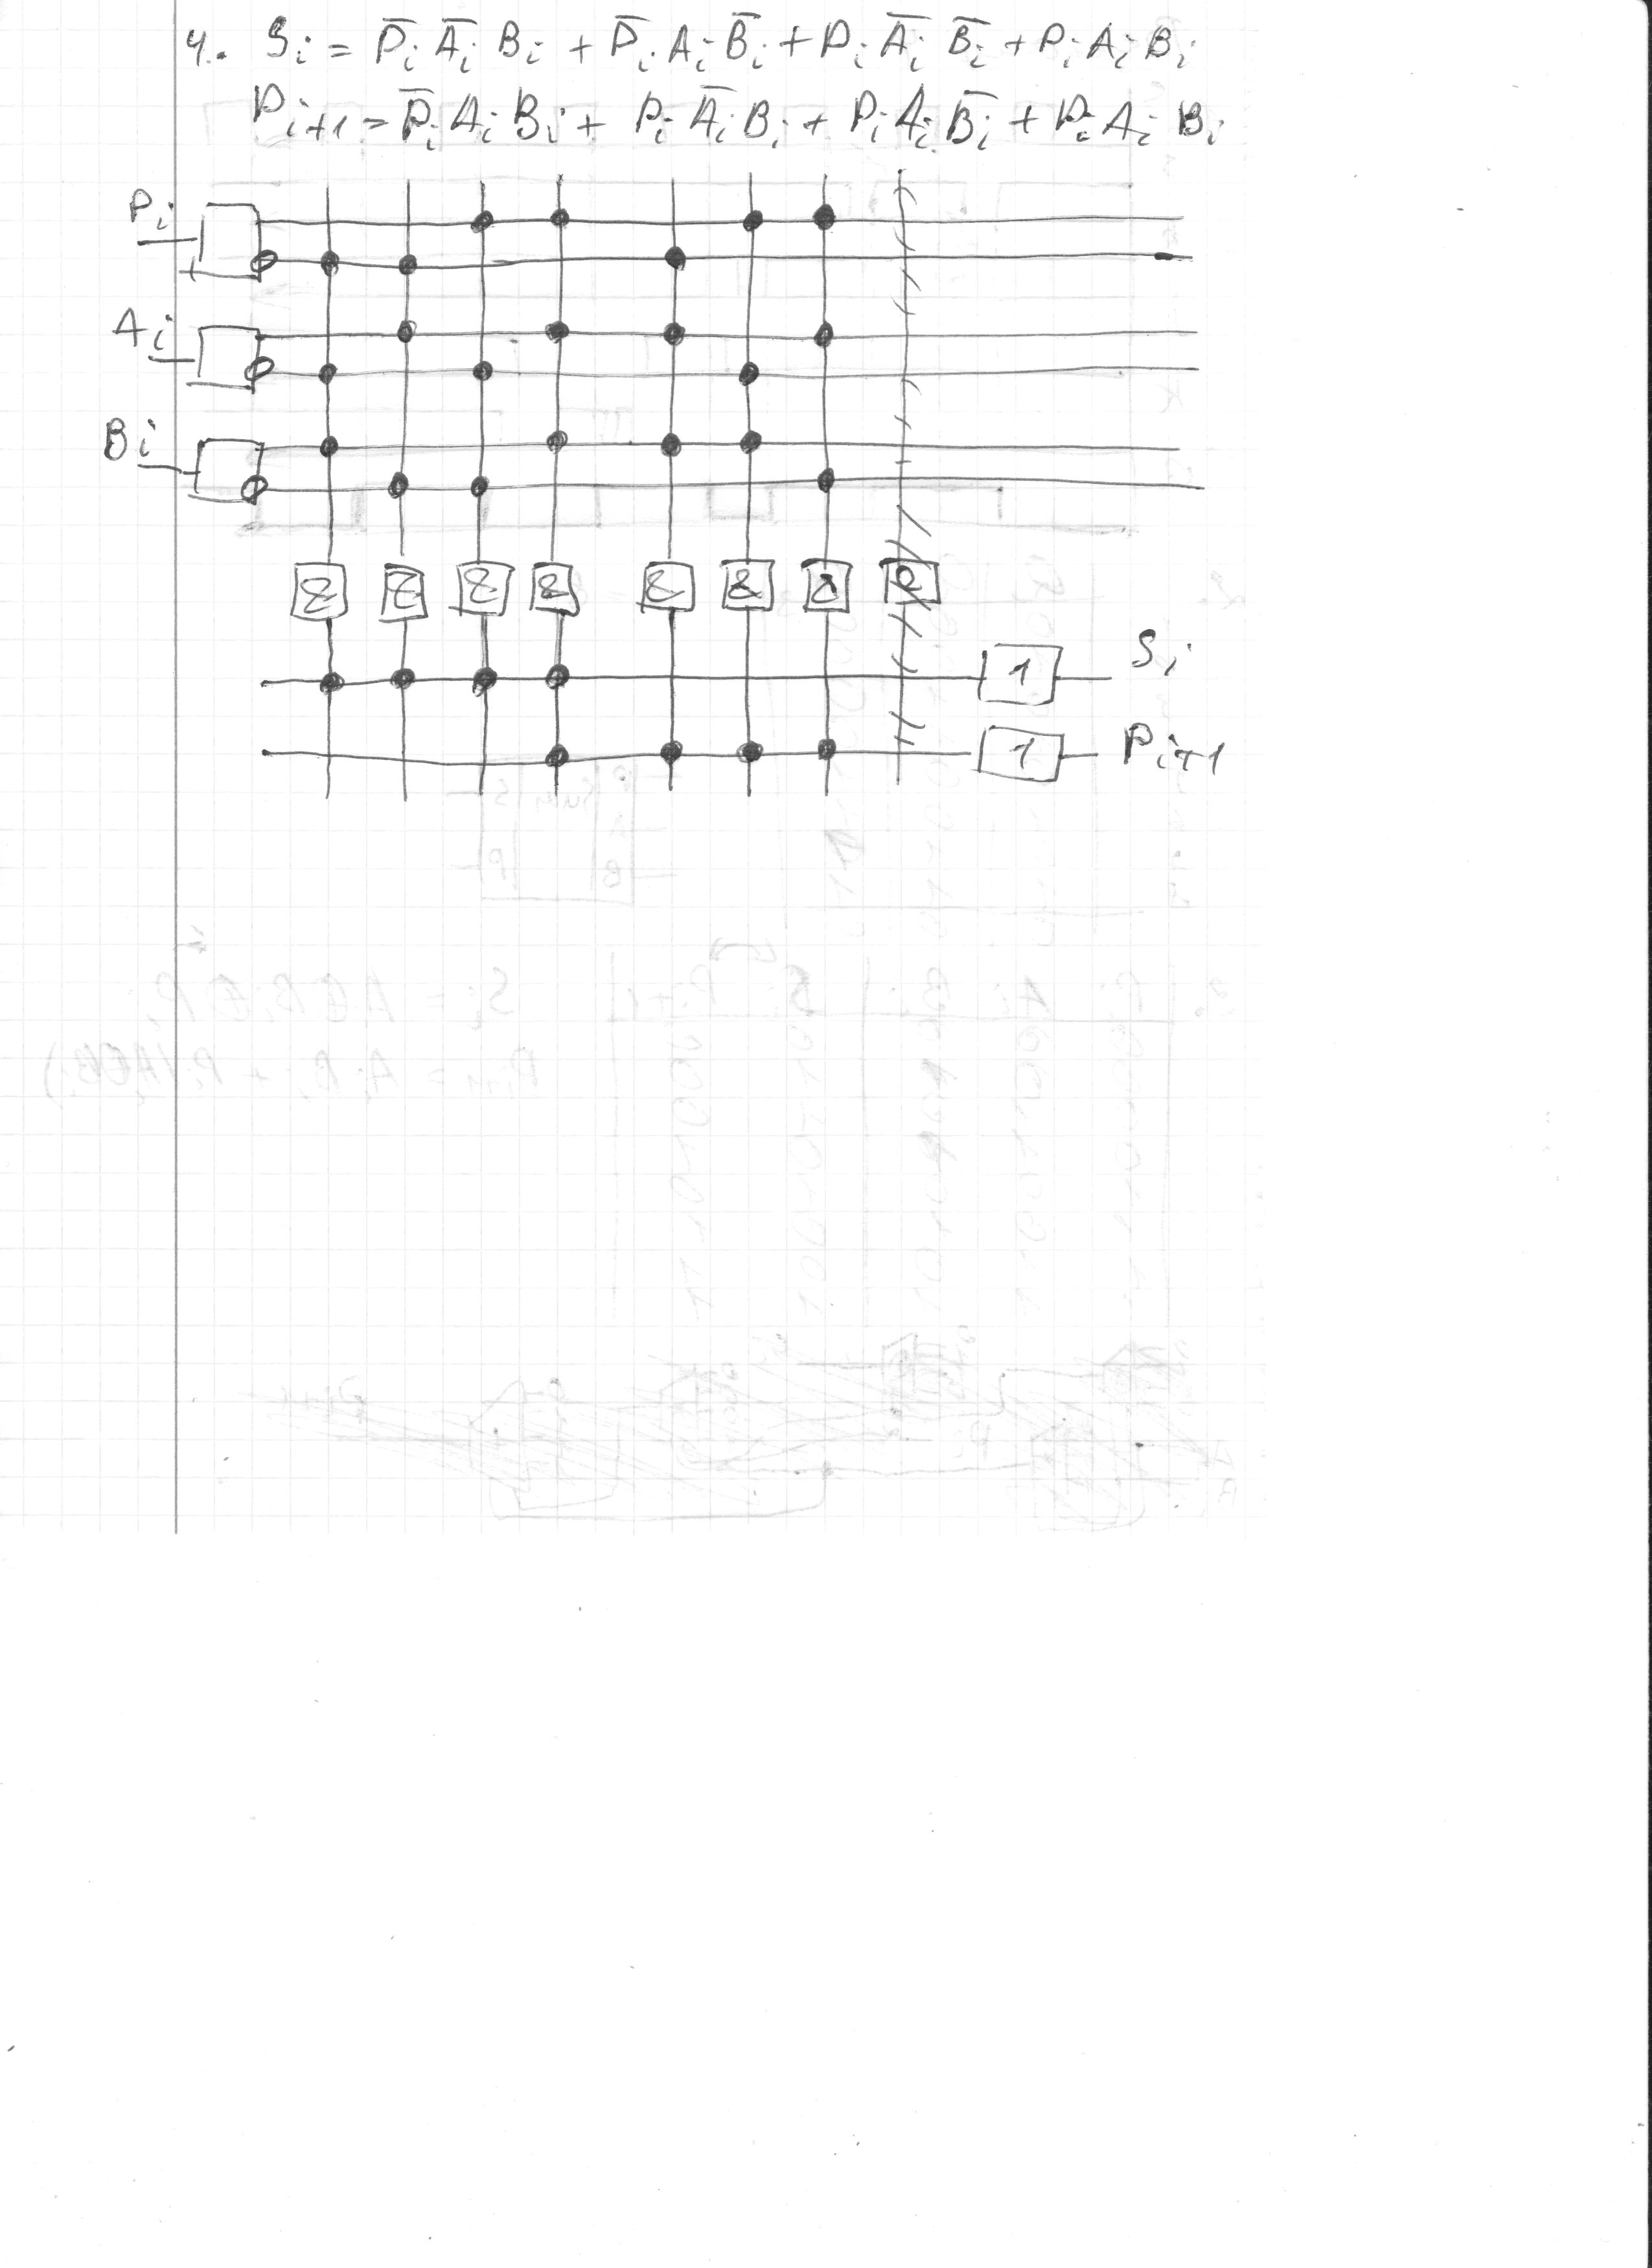 4. Sᵢ = P̅ᵢ A̅ᵢ Bᵢ + P̅ᵢ Aᵢ B̅ᵢ + Pᵢ A̅ᵢ B̅ᵢ + Pᵢ Aᵢ Bᵢ
Pᵢ₊₁ = P̅ᵢ Aᵢ Bᵢ + Pᵢ A̅ᵢ Bᵢ + Pᵢ Aᵢ B̅ᵢ + Pᵢ Aᵢ Bᵢ
Pᵢ
Aᵢ
Bᵢ
& & & & & & & &
1 Sᵢ
1 Pᵢ₊₁